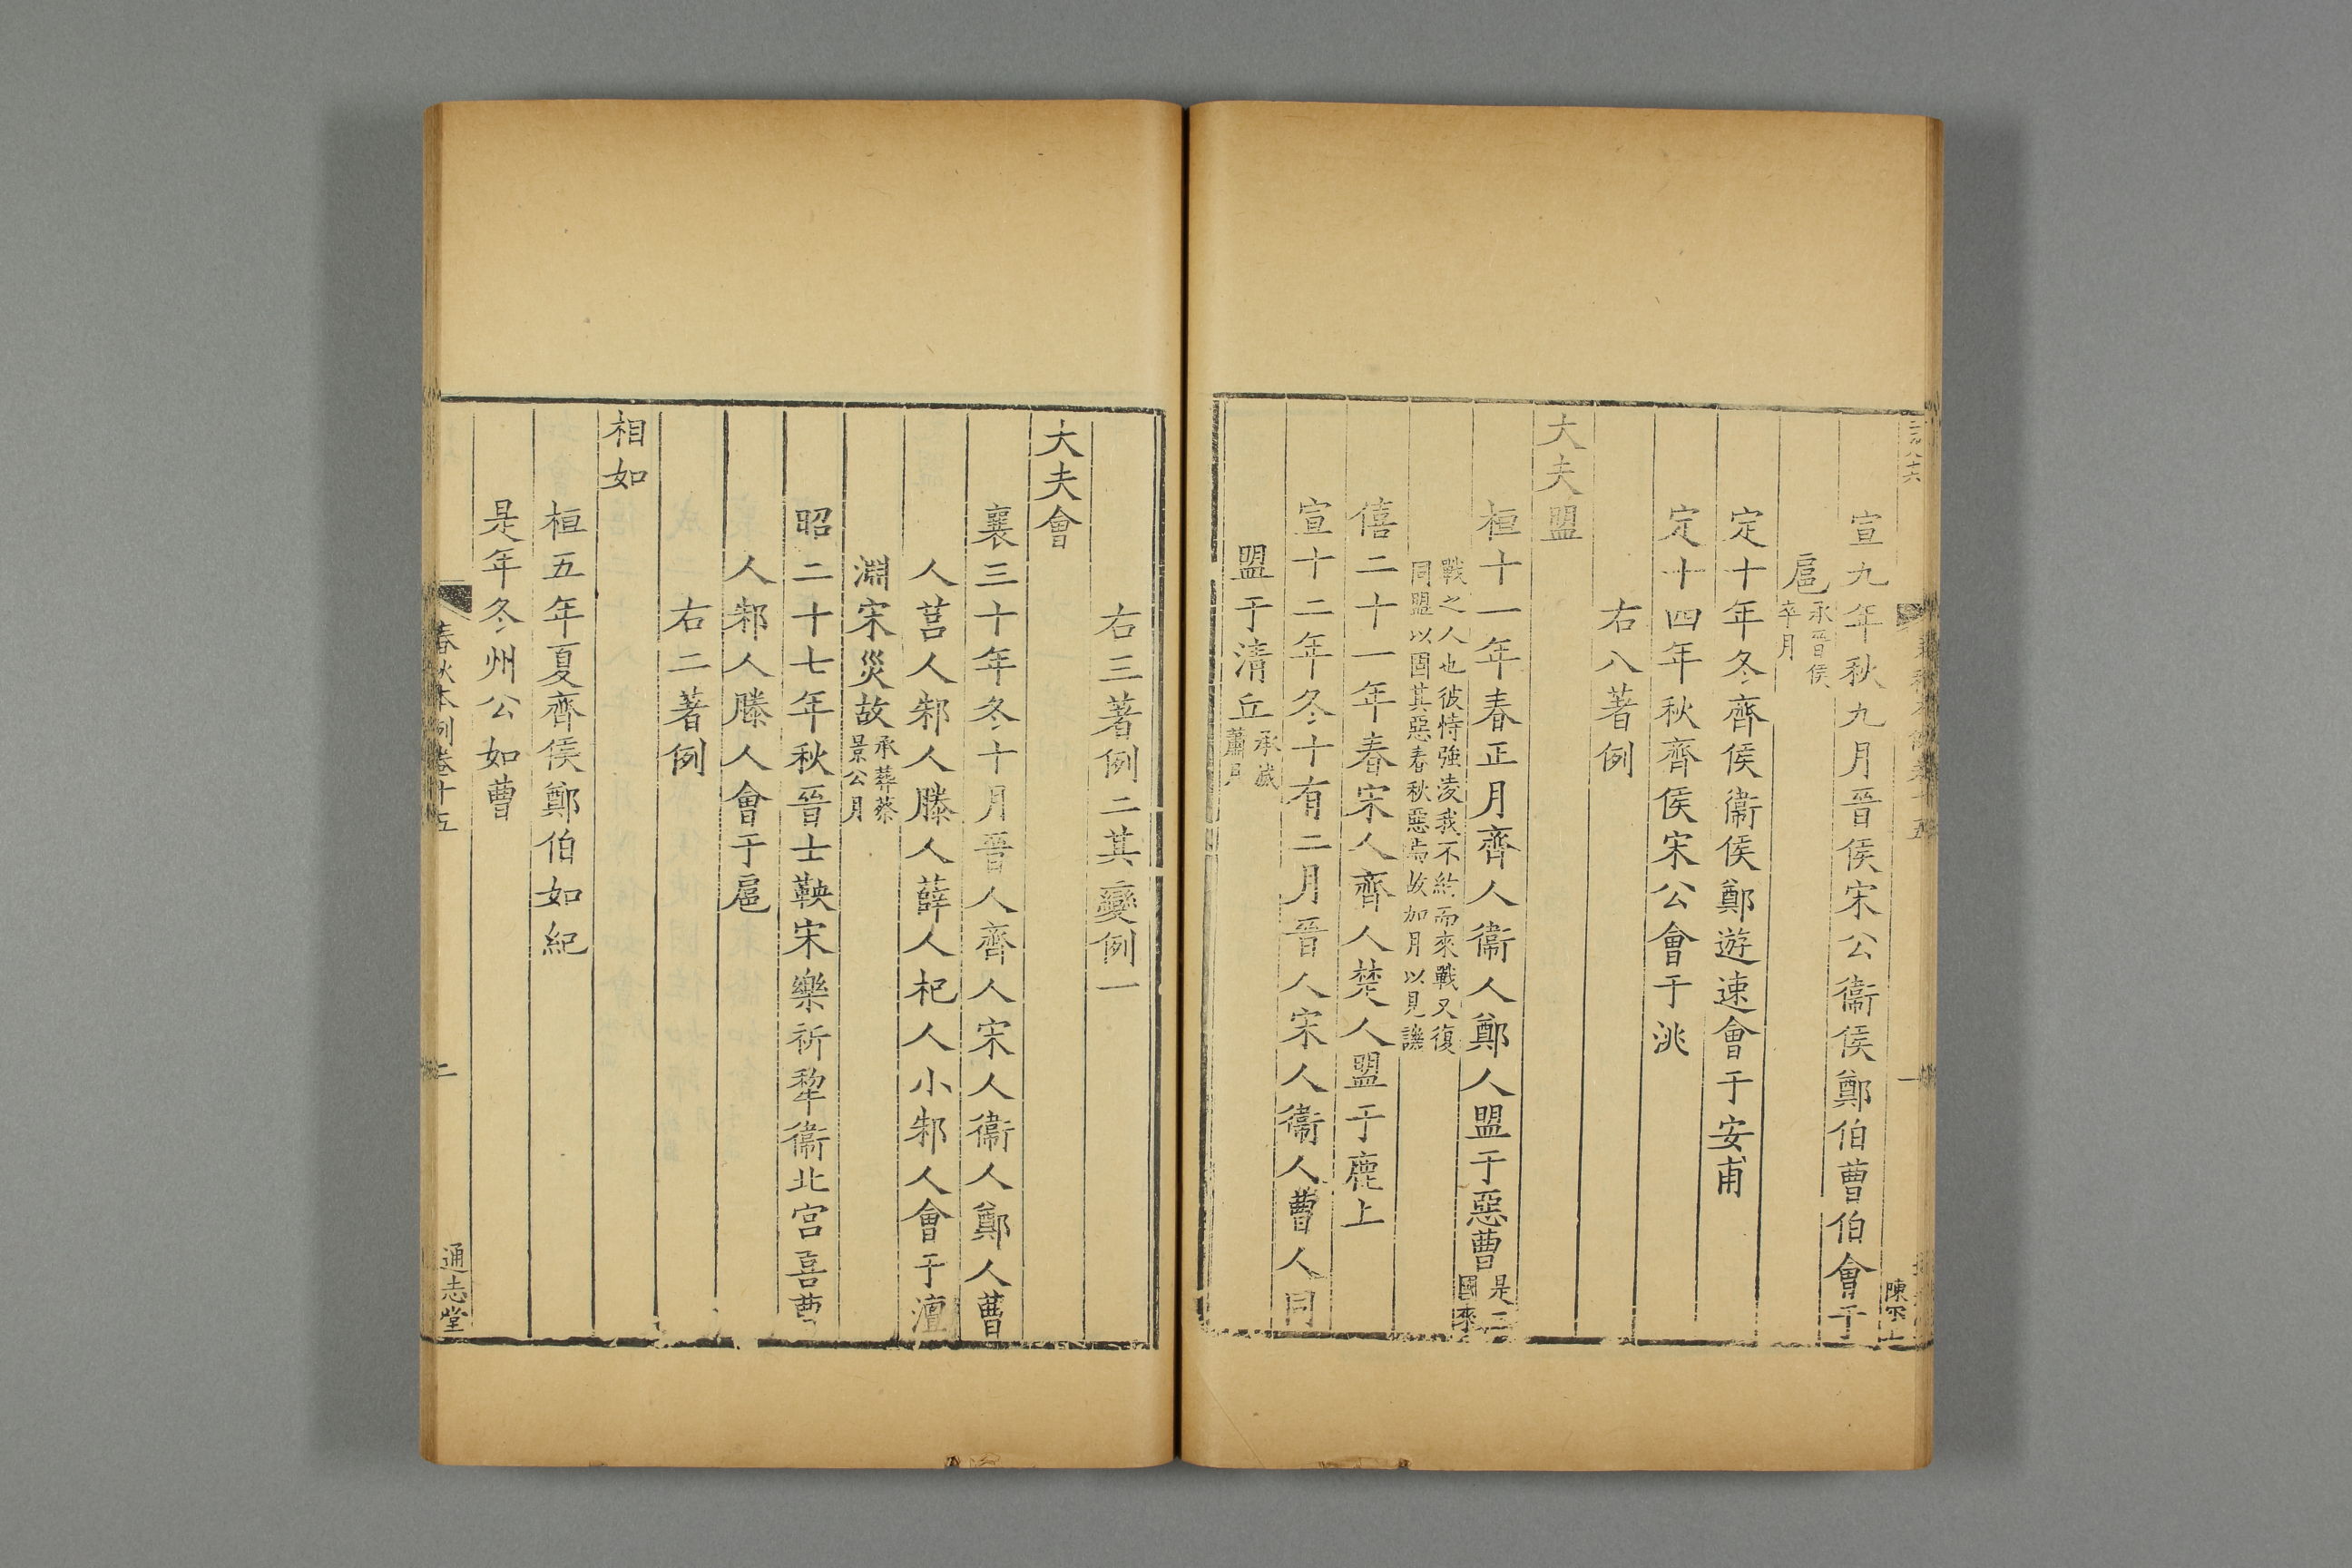 宣九年秋九月晉侯宋公衞侯鄭伯曹伯會于
扈承晉侯卒月
定十年冬齊侯衞侯鄭遊速會于安甫
定十四年秋齊侯宋公會于洮
右八著例
大夫盟
桓十一年春正月齊人衞人鄭人盟于惡曹是三國來
戰之人也彼恃強凌我不約而來戰又復
同盟以固其惡春秋惡焉故加月以見譏
僖二十一年春宋人齊人楚人盟于鹿上
宣十二年冬十有二月晉人宋人衞人曹人同
盟于清丘承滅蕭月
右三著例二其變例一
大夫會
襄三十年冬十月晉人齊人宋人衞人鄭人曹
人莒人邾人滕人薛人杞人小邾人會于澶
淵宋災故承葬蔡景公月
昭二十七年秋晉士鞅宋樂祈犂衞北宮喜曹
人邾人滕人會于扈
右二著例
相如
桓五年夏齊侯鄭伯如紀
是年冬州公如曹
春秋本例卷十五 二 通志堂